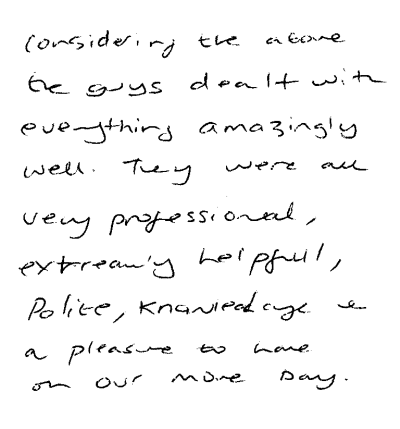 Considering the above
the guys dealt with
everything amazingly
well. They were all
very professional,
extreamly helpfull,
Polite, Knowledage &
a pleasure to have
on our move Day.